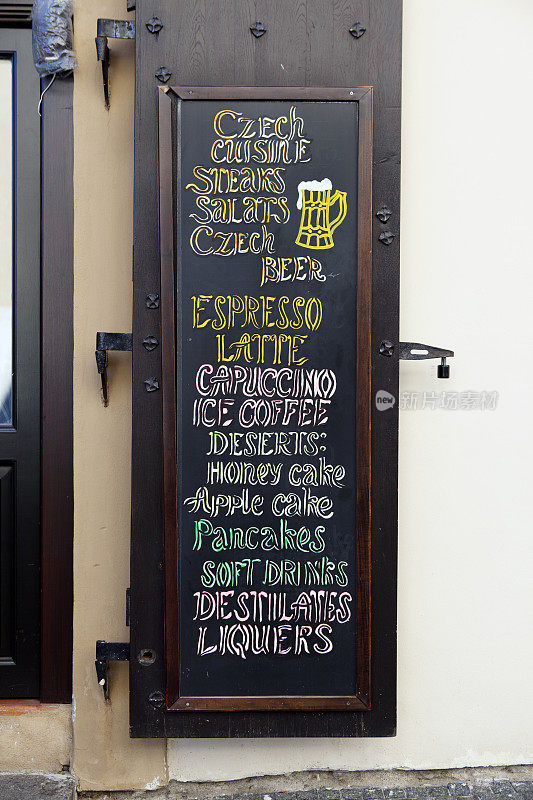 Czech
CUISINE
STEAKS
SALATS
Czech
BEER
ESPRESSO
LATTE
CAPUCCINO
ICE COFFEE
DESERTS:
HONEY CAKE
Apple cake
Pancakes
SOFT DRINKS
DESTILATES
LIQUERS
new 新片场素材